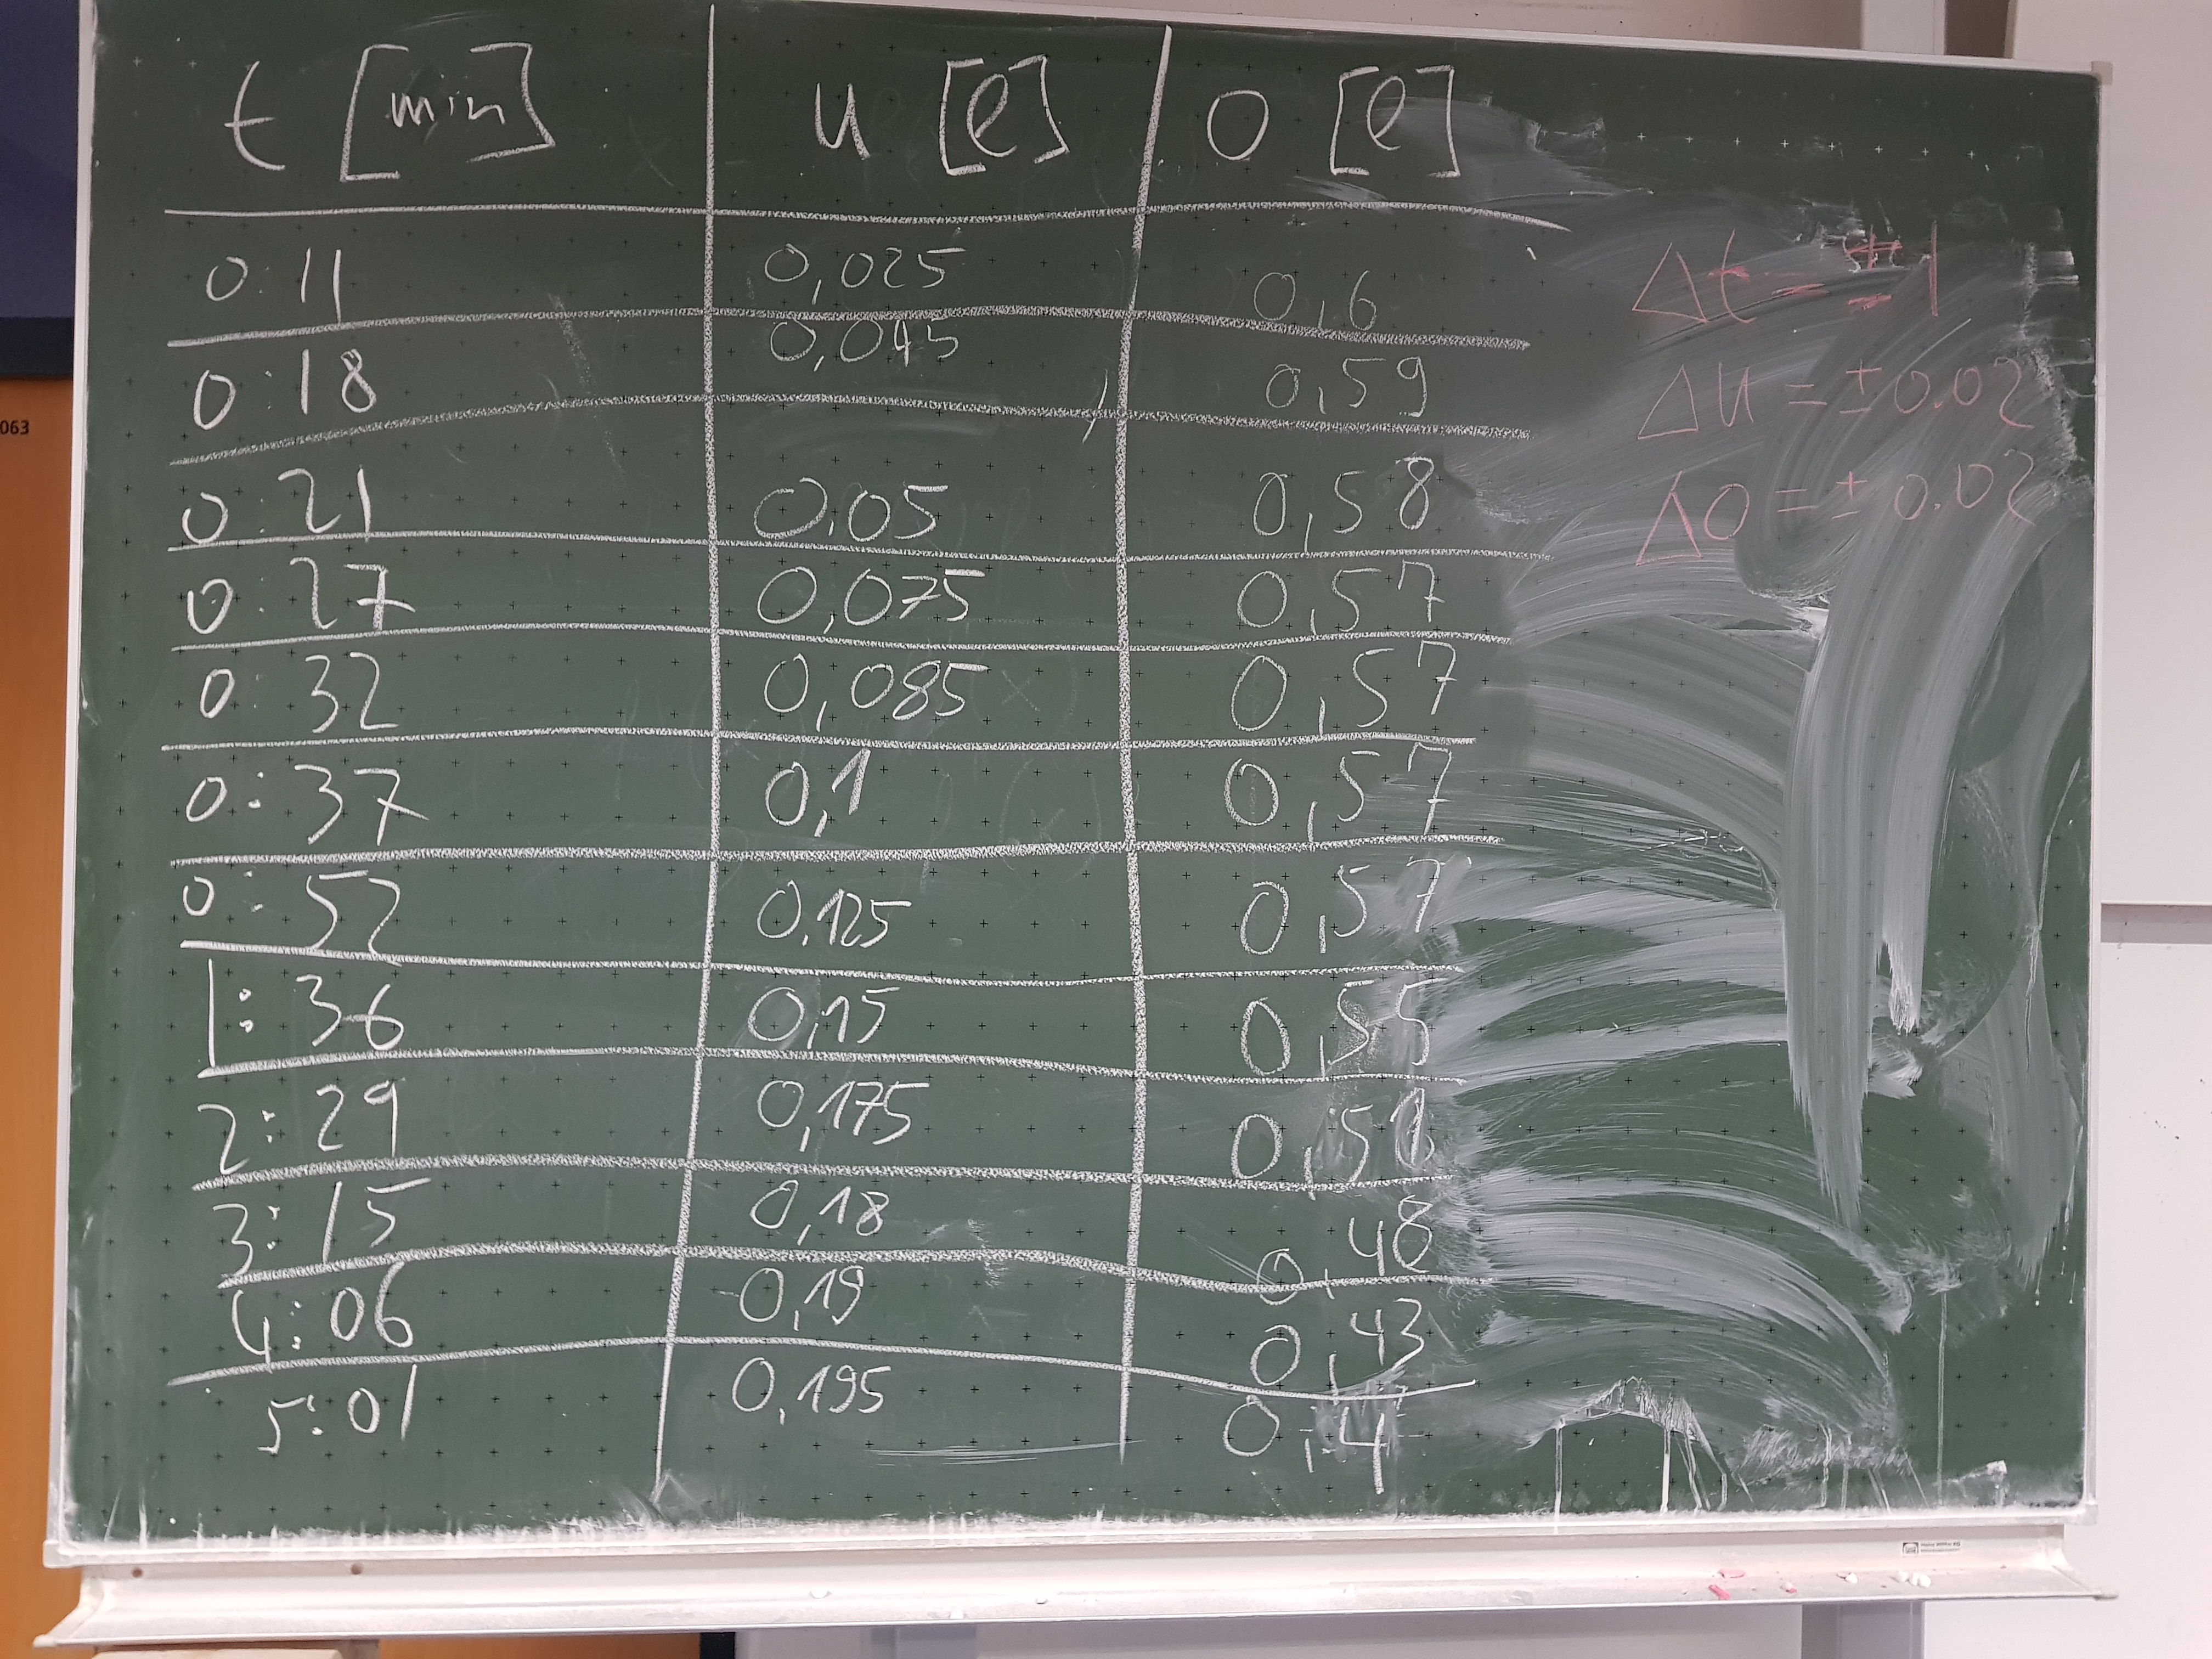 t [min] u [l] o [l]
0:11 0,025 0,6
0:18 0,045 0,59
0:21 0,05 0,58
0:27 0,075 0,57
0:32 0,085 0,57
0:37 0,1 0,57
0:52 0,125 0,57
1:36 0,15 0,55
2:29 0,175 0,51
3:15 0,18 0,48
4:06 0,19 0,43
5:01 0,195 0,4
Δt = ±1
Δu = ±0.02
Δo = ±0.02
063